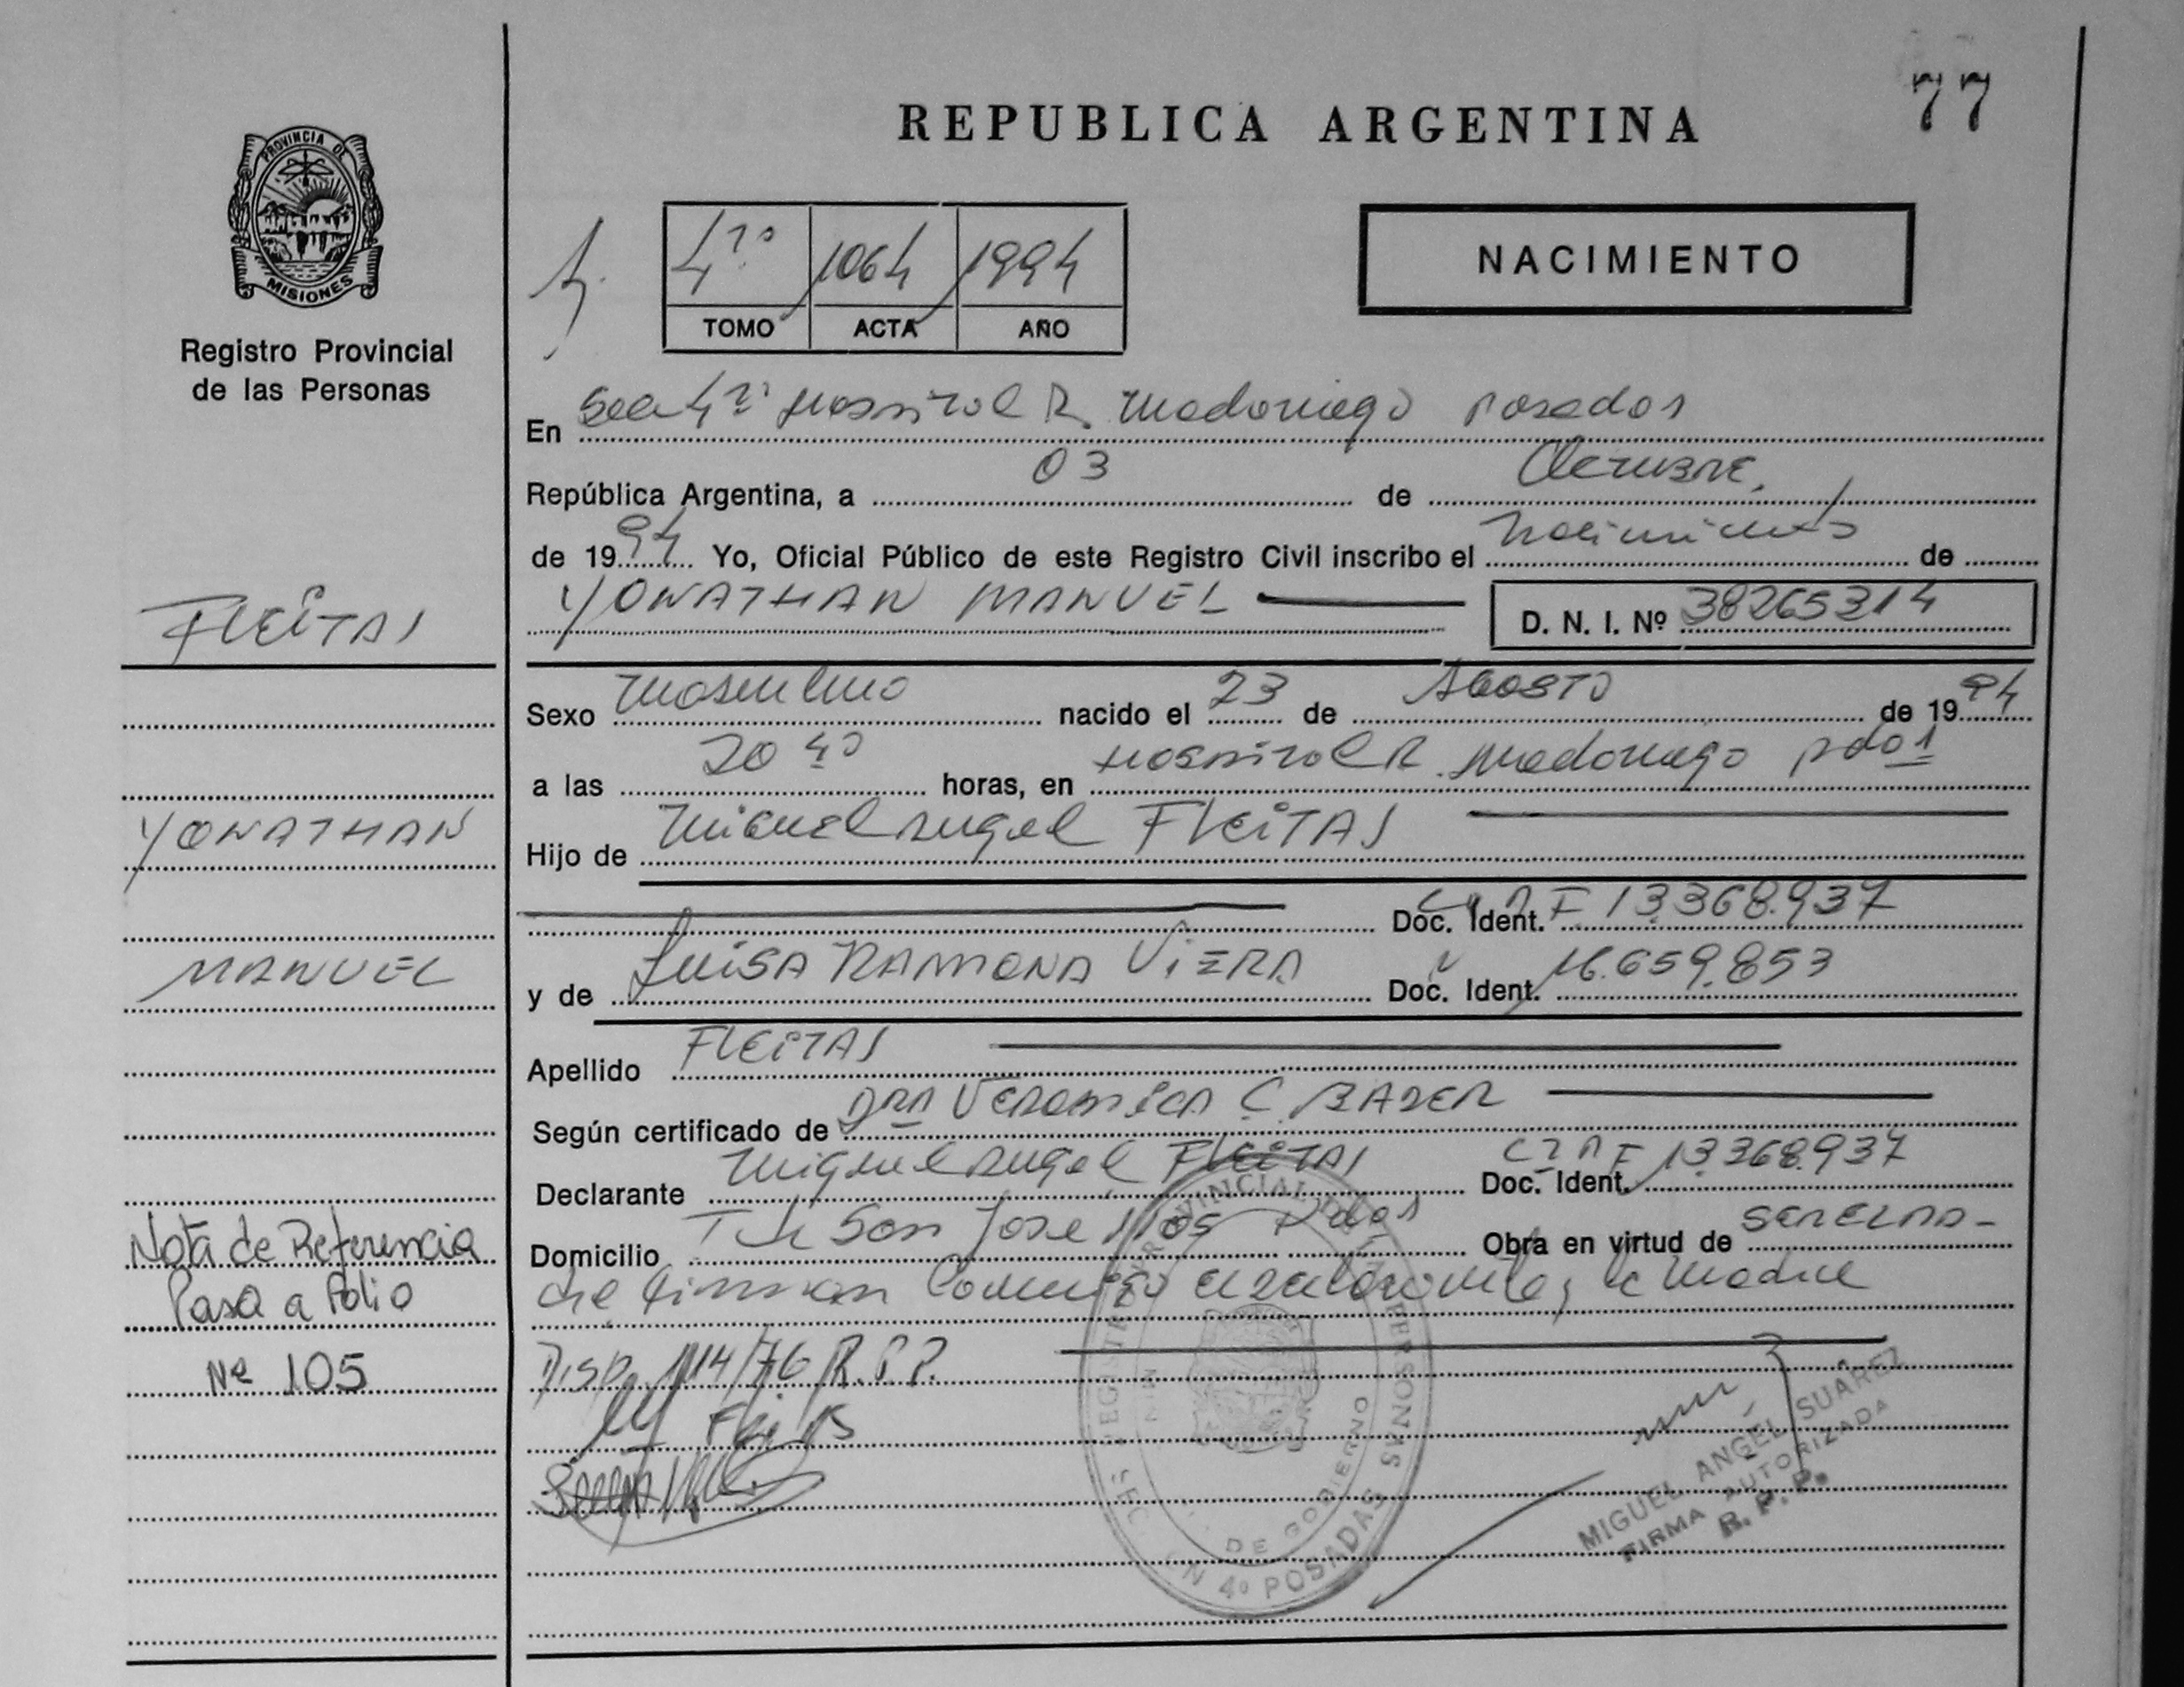 77
REPUBLICA ARGENTINA
PROVINCIA DE
MISIONES
Registro Provincial
de las Personas
4to 1064 1994
TOMO ACTA AÑO
NACIMIENTO
En Secc 4ta Hospital R. Madariaga Posadas
República Argentina, a 03 de Octubre.
de 1994 Yo, Oficial Público de este Registro Civil inscribo el nacimiento de
YONATHAN MANUEL
D. N. I. Nº 38265314
FLEITAS
Sexo masculino nacido el 23 de AGOSTO de 1994
a las 20 40 horas, en Hospital R. Madariaga Pdas
YONATHAN
Hijo de Miguel Angel FLEITAS
Doc. Ident. F 13.368.937
MANUEL
y de LUISA RAMONA VIERA Doc. Ident. 16.659.853
Apellido FLEITAS
Según certificado de Dra VERONICA C. BADER
Declarante Miguel Angel FLEITAS Doc. Ident. F 13.368.937
Domicilio San Jose Pdas Obra en virtud de SER EL PA-
dre firman la Madre
Nota de Referencia
Pasa a Folio
Nº 105
Disp. 114/76 R.P.P.
MIGUEL ANGEL SUAREZ
FIRMA AUTORIZADA
R. P. P.
REGISTRO PROVINCIAL DE LAS PERSONAS
MIN. DE GOBIERNO
SECCION 4º POSADAS